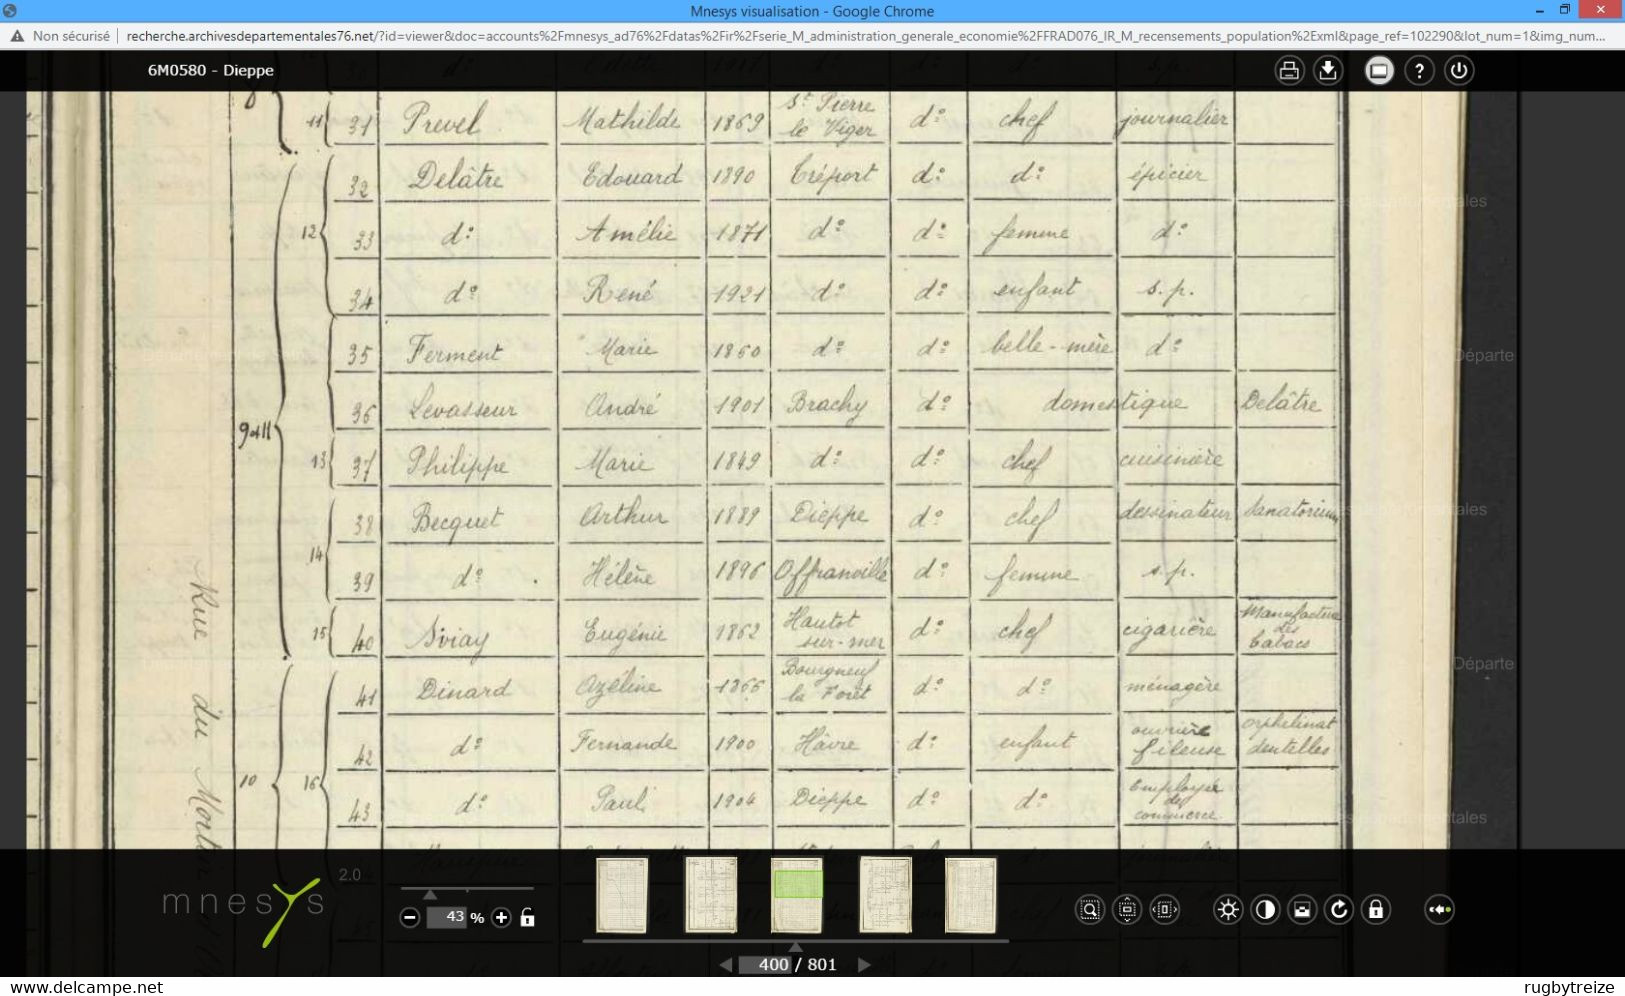 Mnesys visualisation - Google Chrome
Non sécurisé | recherche.archivesdepartementales76.net/?id=viewer&doc=accounts%2Fmnesys_ad76%2Fdatas%2Fir%2Fserie_M_administration_generale_economie%2FFRAD076_IR_M_recensements_population%2Exml&page_ref=102290&lot_num=1&img_num...
6M0580 - Dieppe
11 31 Prevel Mathilde 1869 St Pierre le Viger do chef journalier
32 Delâtre Edouard 1890 Tréport do do épicier
12 33 do Amélie 1871 do do femme do
34 do René 1921 do do enfant s.p.
35 Ferment Marie 1860 do do belle-mère do
36 Levasseur André 1901 Brachy do domestique Delâtre
9 et 11
13 37 Philippe Marie 1849 do do chef cuisinière
38 Becquet Arthur 1889 Dieppe do chef dessinateur Sanatorium
14
39 do Hélène 1896 Offranville do femme s.p.
15 40 Eugénie 1862 Hautot sur-mer do chef cigarière Manufacture des tabacs
41 Dinard Azéline 1866 Bourgneuf la Forêt do do ménagère
42 do Fernande 1900 Hâvre do enfant ouvrière fileuse orphelinat dentelles
10 16 43 do Paul 1904 Dieppe do do Employée de commerce
Rue du
Départe
Départe
mnesys 2.0
43 %
400 / 801
www.delcampe.net
rugbytreize